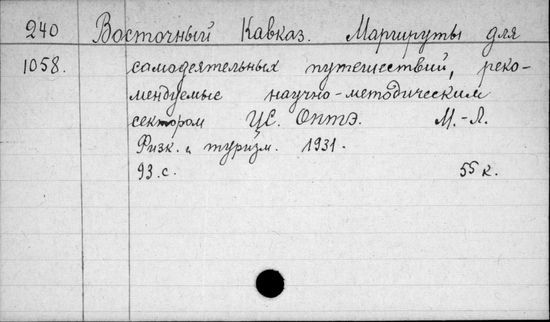 240 Восточный Кавказ. Маршруты для
1058. самодеятельных путешествий, реко-
мендуемые научно-методическим
сектором ЦС. ОПТЭ. М.-Л.
Физк. и туризм. 1931.
93. с. 55 к.